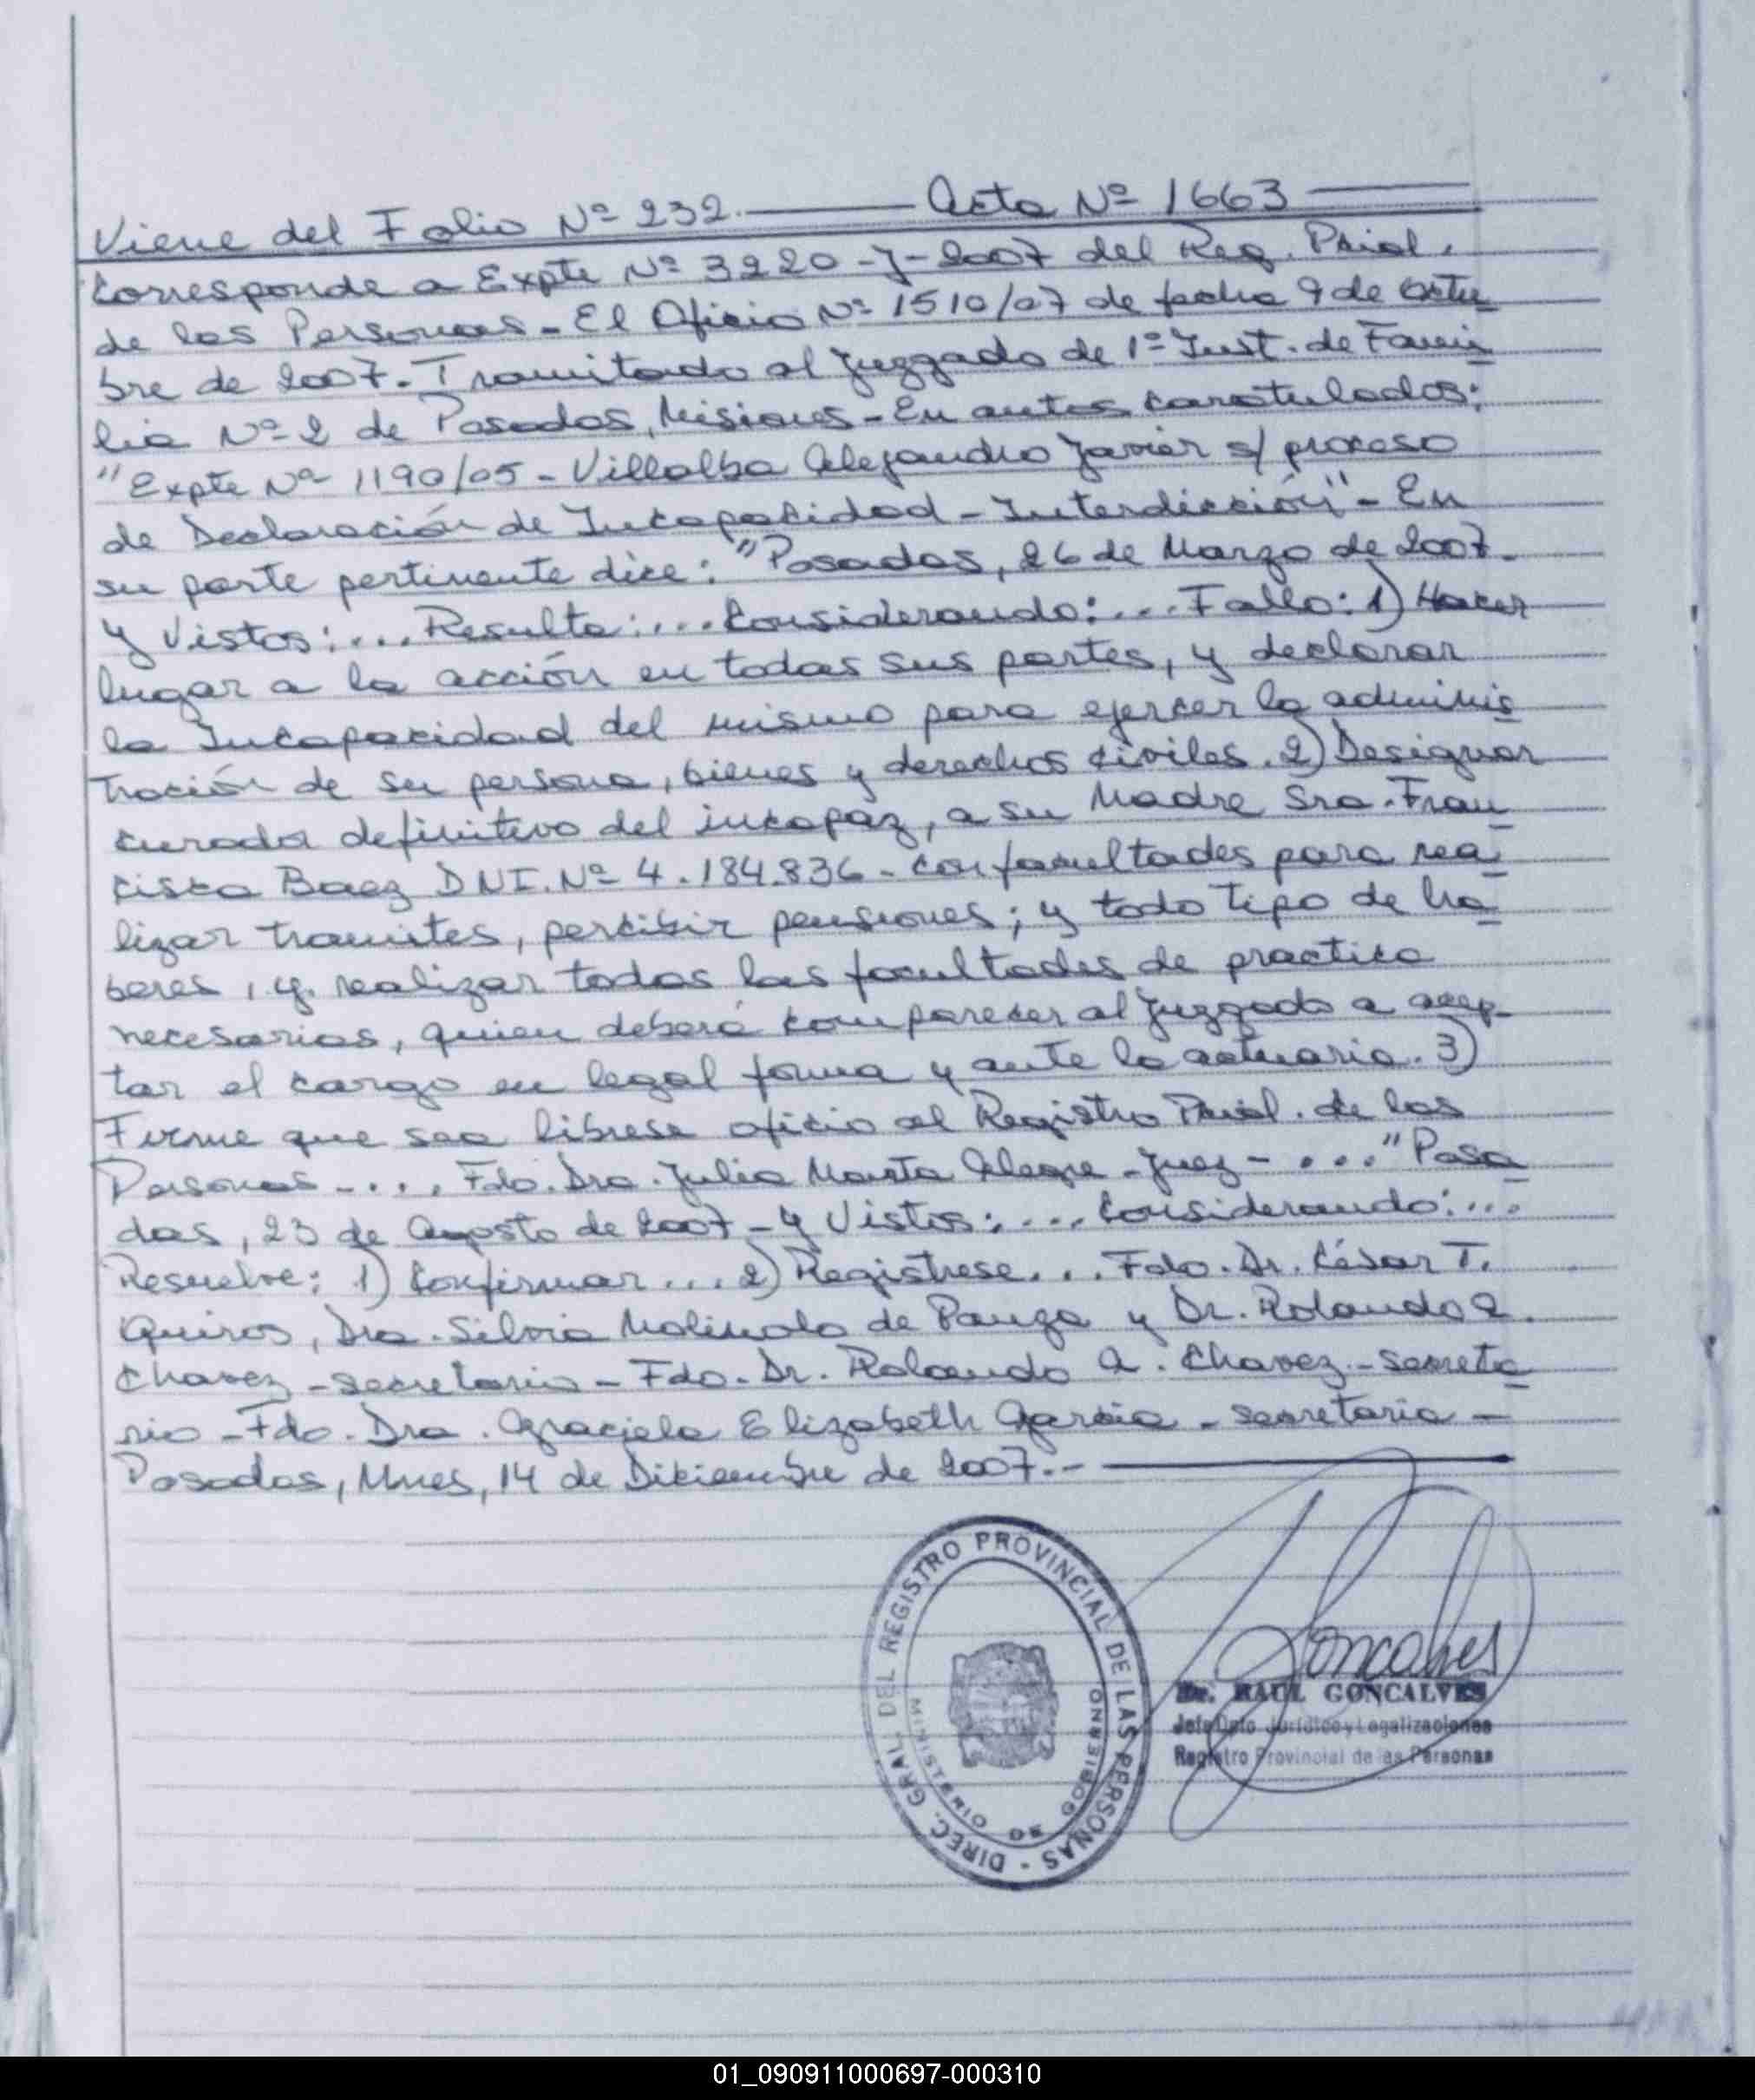 Viene del Folio Nº 232. Acta Nº 1663
Corresponde a Expte Nº 3220-J-2007 del Reg. Pcial.
de las Personas - El Oficio Nº 1510/07 de fecha 9 de Octu
bre de 2007. Tramitado al Juzgado de 1ª Inst. de Fami
lia Nº 2 de Posadas, Misiones - En autos caratulados:
"Expte Nº 1190/05 - Villalba Alejandro Javier s/ proceso
de Declaración de Incapacidad - Interdicción" - En
su parte pertinente dice: "Posadas, 26 de Marzo de 2007.
y Vistos: ... Resulta: ... Considerando: ... Fallo: 1) Hacer
lugar a la acción en todas sus partes, y declarar
la Incapacidad del mismo para ejercer la adminis
tración de su persona, bienes y derechos civiles. 2) Designar
curador definitivo del incapaz, a su Madre Sra. Fran
cisca Baez DNI. Nº 4.184.836 - con facultades para rea
lizar tramites, percibir pensiones; y todo tipo de ha
beres, y realizar todas las facultades de practica
necesarias, quien deberá comparecer al Juzgado a acep-
tar el cargo en legal forma y ante la actuaria. 3)
Firme que sea librese oficio al Registro Pcial. de las
Personas - ... Fdo. Dra. Julia Marta Alegre - Juez - ... "Posa
das, 23 de Agosto de 2007 - y Vistos: ... Considerando: ...
Resuelve: 1) Confirmar ... 2) Registrese ... Fdo. Dr. César T.
Quiros, Dra. Silvia de Panza y Dr. Rolando A.
Chavez - secretario - Fdo. Dr. Rolando A. Chavez - secreta
rio - Fdo. Dra. Graciela Elizabeth Garcia - secretaria -
Posadas, Mnes, 14 de Diciembre de 2007.-
DIREC. GRAL. DEL REGISTRO PROVINCIAL DE LAS PERSONAS -
MINISTERIO DE GOBIERNO
Goncalves
Dr. RAUL GONCALVES
Jefe Dpto Jurídico y Legalizaciones
Registro Provincial de las Personas
01_090911000697-000310